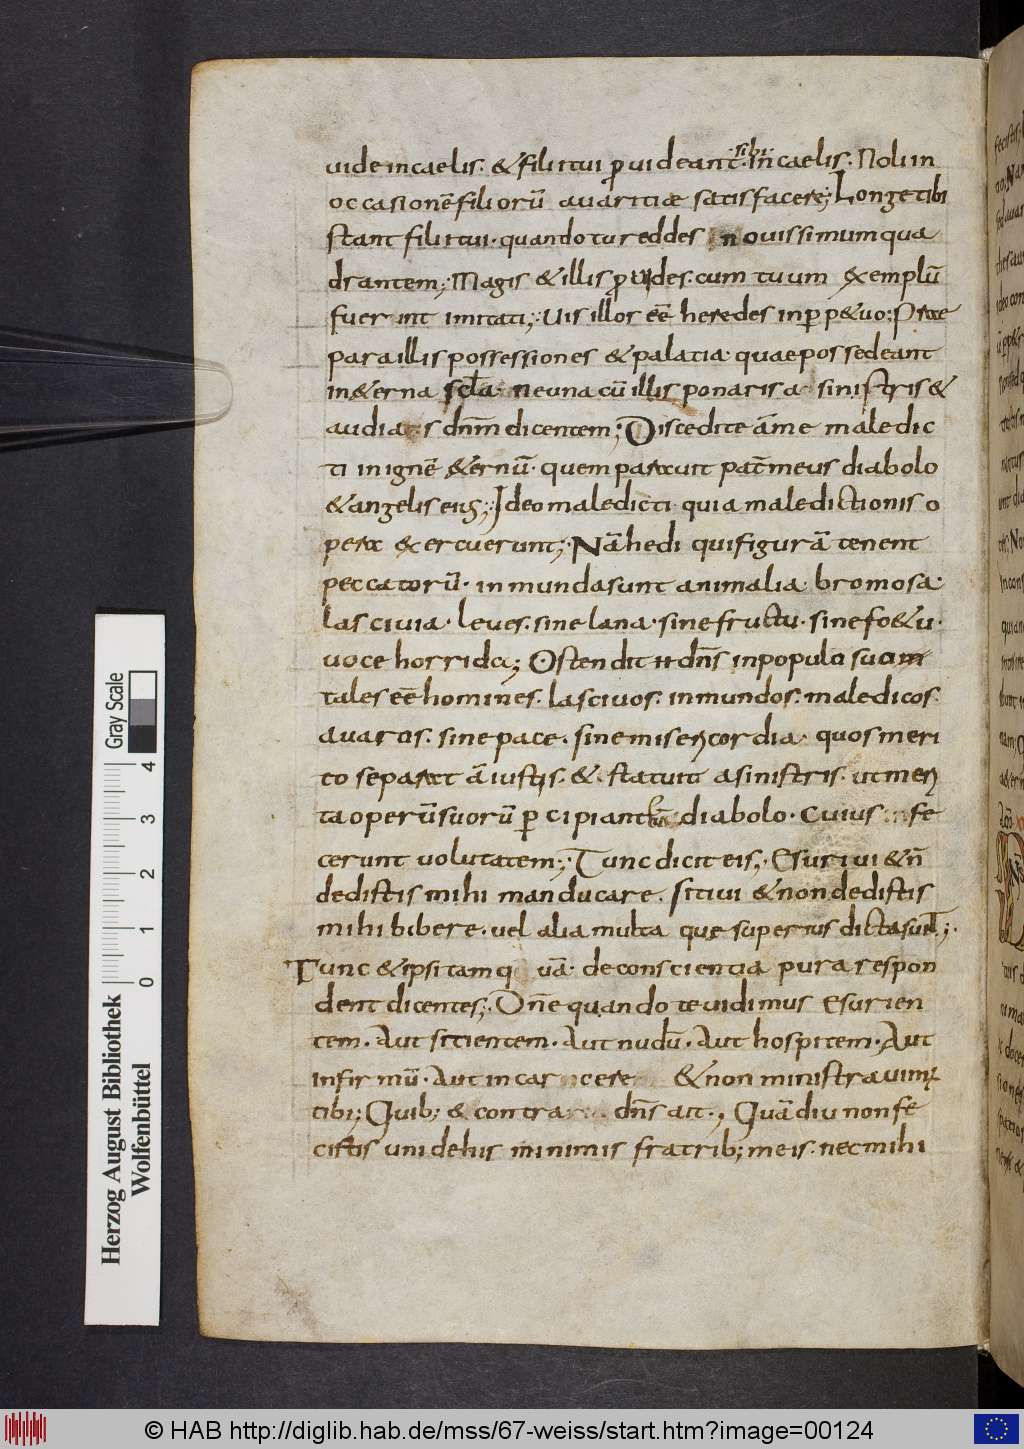 uide incaelis. & filii tui ꝑuideant sibi incaelis. Noli in
occasionē filiorū auaritiae satisfacere; Longe tibi
stant filii tui. quando tu reddes nouissimum qua
drantem; Magis & illis ꝓuides. cum tuum exemplū
fuerint imitati; Uis illor eē heredes inꝑp&uo; Prae
para illis possessiones & palatia quae possedeant
in &erna scla. ne una cū illis ponaris a sinistris &
audiatis dnm dicentem; Discedite a me maledic
ti in ignē &ernū. quem parauit pat meus diabolo
& angelis eius; Ideo maledicti quia maledictionis o
pera exercuerunt; Nā hedi qui figurā tenent
peccatorū. inmunda sunt animalia bromosa.
lasciuia. leues. sine lana. sine fructu. sine fo&u.
uoce horrida; Ostendit dns in populo suo
tales eē homines. lasciuos. inmundos. maledicos.
auaros. sine pace. sine misericordia. quos meri
to separat a iustis. & statuit a sinistris. ut meri
ta operū suorū ꝑcipiant cū diabolo. Cuius fe
cerunt uolutatem; Tunc dicit eis; Esuriui & n̄
dedistis mihi manducare. sitiui & non dedistis
mihi bibere. uel alia multa que superius dicta sunt;
Tunc & ipsi tamq uā de conscientia pura respon
dent dicentes; Dn̄e quando te uidimus esurien
tem. Aut sitientem. Aut nudū. Aut hospitem. Aut
infirmū. Aut in carcere & non ministrauimus
tibi; Quib; & contra dns ait., Quādiu non fe
cistis uni de his minimis fratrib; meis. nec mihi
Gray Scale
0 1 2 3 4
Herzog August Bibliothek
Wolfenbüttel
© HAB http://diglib.hab.de/mss/67-weiss/start.htm?image=00124